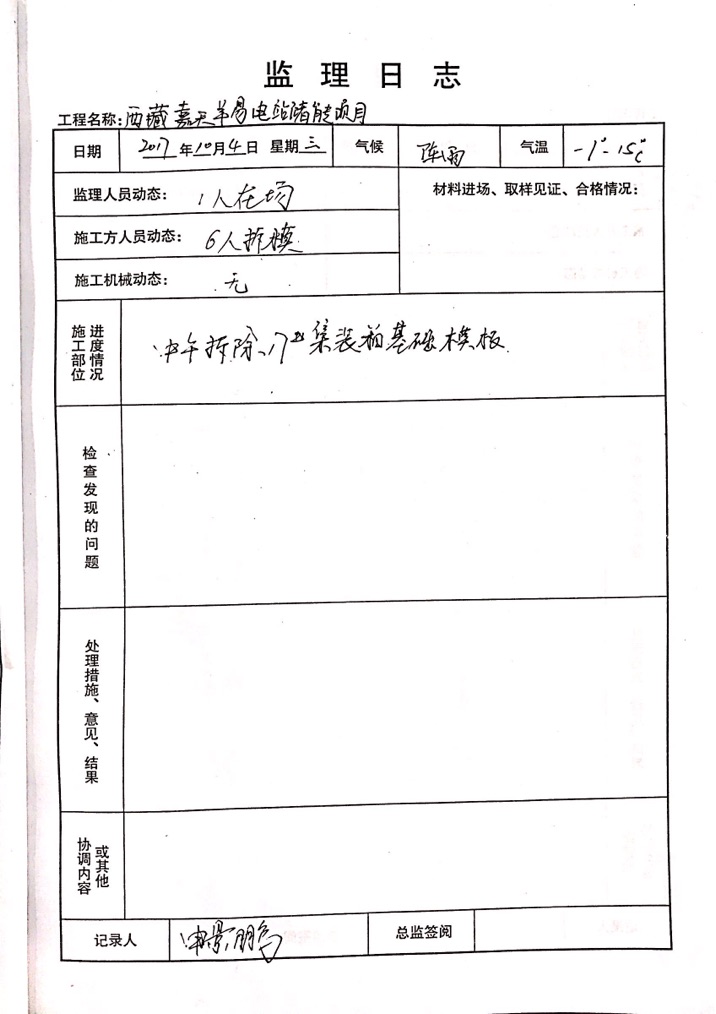 监理日志
工程名称:西藏嘉天羊易电站储能项目
日期 2017年10月4日 星期三 气候 阵雨 气温 -1°-15℃
监理人员动态: 1人在场 材料进场、取样见证、合格情况:
施工方人员动态: 6人拆模
施工机械动态: 无
施工部位进度情况 中午拆除17#集装箱基础模板
检查发现的问题
处理措施、意见、结果
协调内容或其他
记录人 景鹏 总监签阅